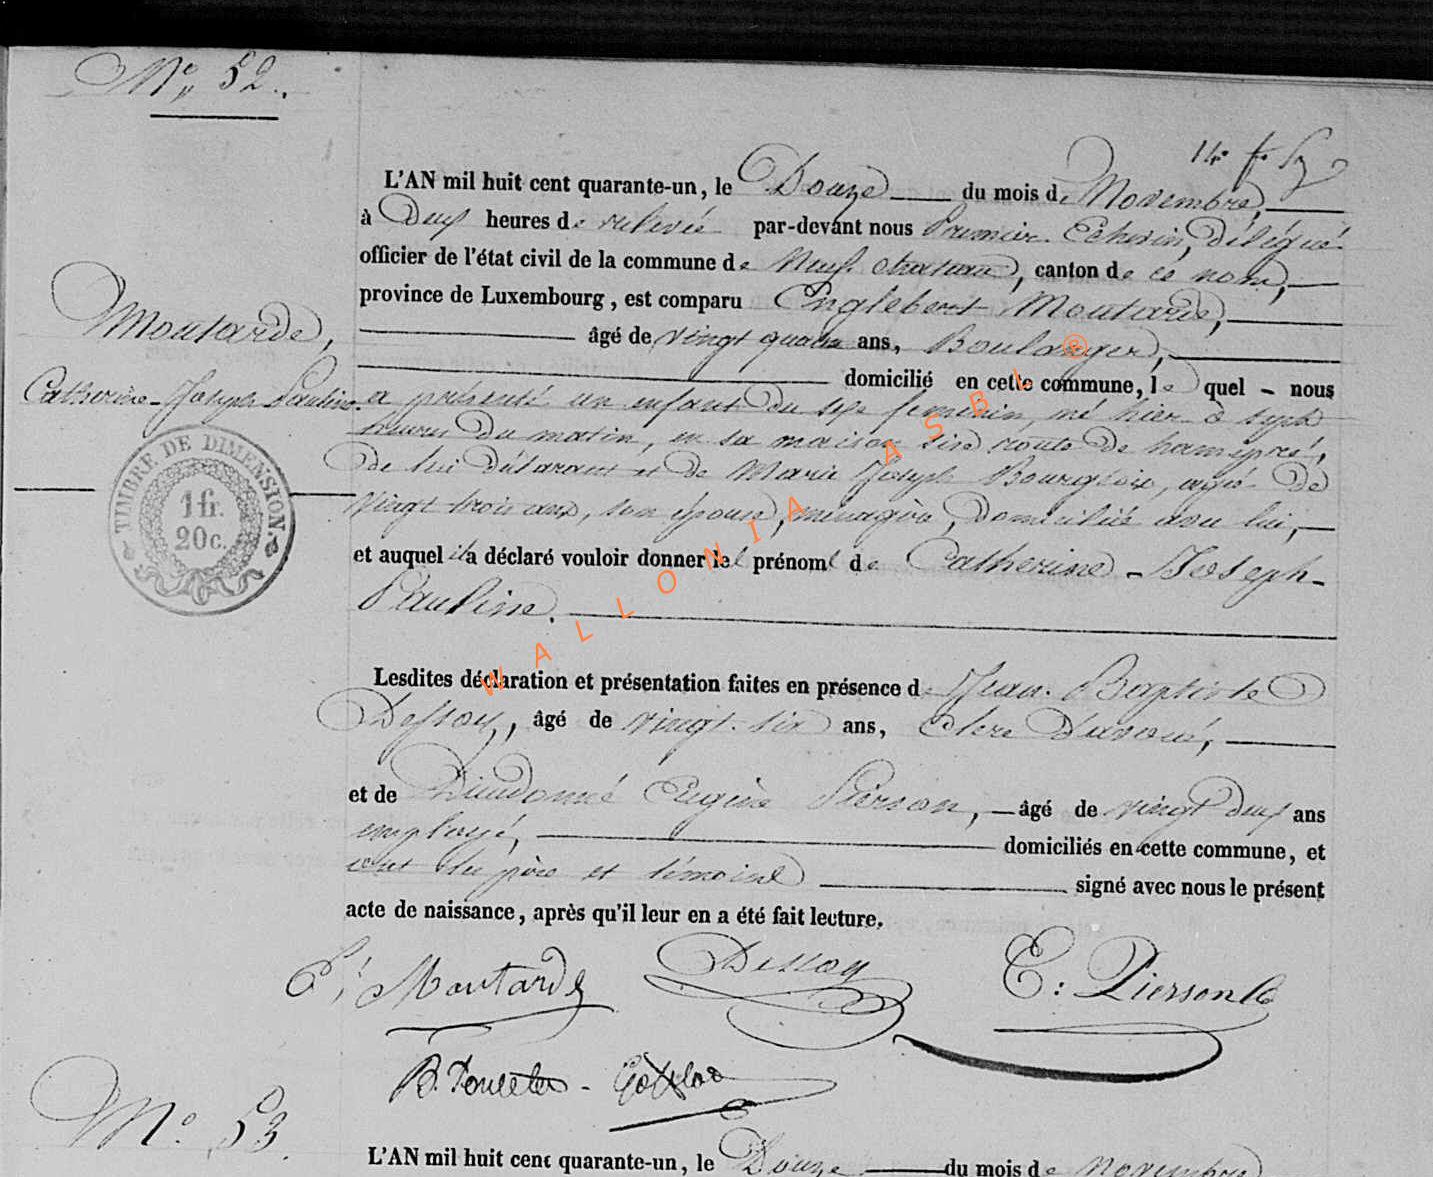 N° 52.
14e f. 
L'AN mil huit cent quarante-un, le Douze du mois de Novembre,
à Deux heures de relevée par-devant nous Premier Echevin, Délégué
officier de l'état civil de la commune de Neufchateau, canton de ce nom,
province de Luxembourg, est comparu Englebert Moutarde,
âgé de vingt quatre ans, Boulanger,
domicilié en cette commune, le quel - nous
Moutarde,
Catherine-Joseph Pauline.
a présenté un enfant du sexe feminin, né hier à sept
heures du matin, en sa maison sise route de hamipré,
de lui déclarant et de Marie Joseph Bourgeois, agée de
vingt trois ans, son épouse, ménagère, domiciliée avec lui,
TIMBRE DE DIMENSION.
1 fr.
20 c.
et auquel il a déclaré vouloir donner le prénom de Catherine-Joseph-
Pauline.
Lesdites déclaration et présentation faites en présence de Jean-Baptiste
Dessoy, âgé de vingt-six ans, Clerc d'avoué,
et de Dieudonné Eugène Pierson, âgé de vingt deux ans
employé, domiciliés en cette commune, et
ont les père et témoins signé avec nous le présent
acte de naissance, après qu'il leur en a été fait lecture.
E. Moutarde Dessoy E: Pierson
WALLONIA ASBL ®
N° 53.
L'AN mil huit cent quarante-un, le Douze du mois de Novembre